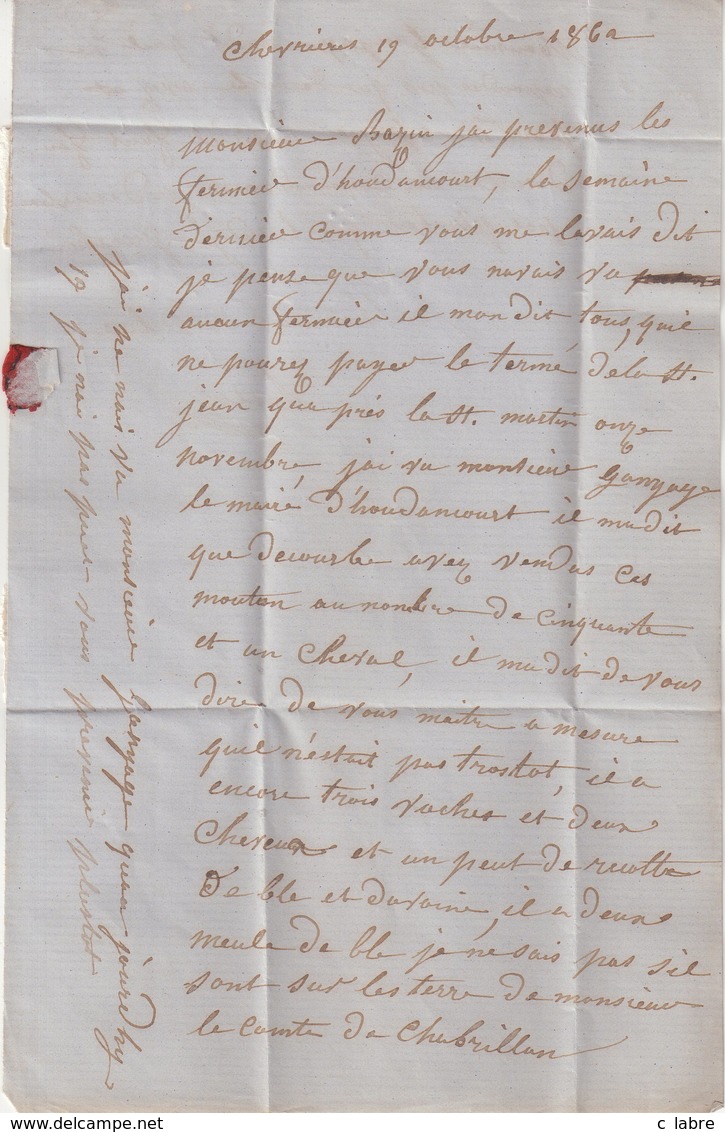 Chevrières 19 octobre 1862
Monsieur Bazin jai prevenus les
fermiée d'houdancourt, la semaine
derniée comme vous me lavais dit
je pense que vous navais vu
aucun fermiée il mon dit tous, quil
ne pourez payer le terme dela St.
jean qua prés la St. martin onze
novembre jai vu monsieur Ganyage
le maire d'houdancourt il madit
que decourbe avez vendus ces
mouton au nombre de cinquante
et un cheval, il madit de vous
dire de vous maitre a mesure
quil n'éstait pas trostot, il a
encore trois vaches et deux
cheveux et un peut de recolte
de blé et davoine, il a deux
meule de blé je ne sais pas s'il
sont sur les terre de monsieur
le comte de Chabrillan
jai ne nais vu monsieur Ganyage quaa jourdhy
19 je nai pas peut vous prevenir plustot
c labre